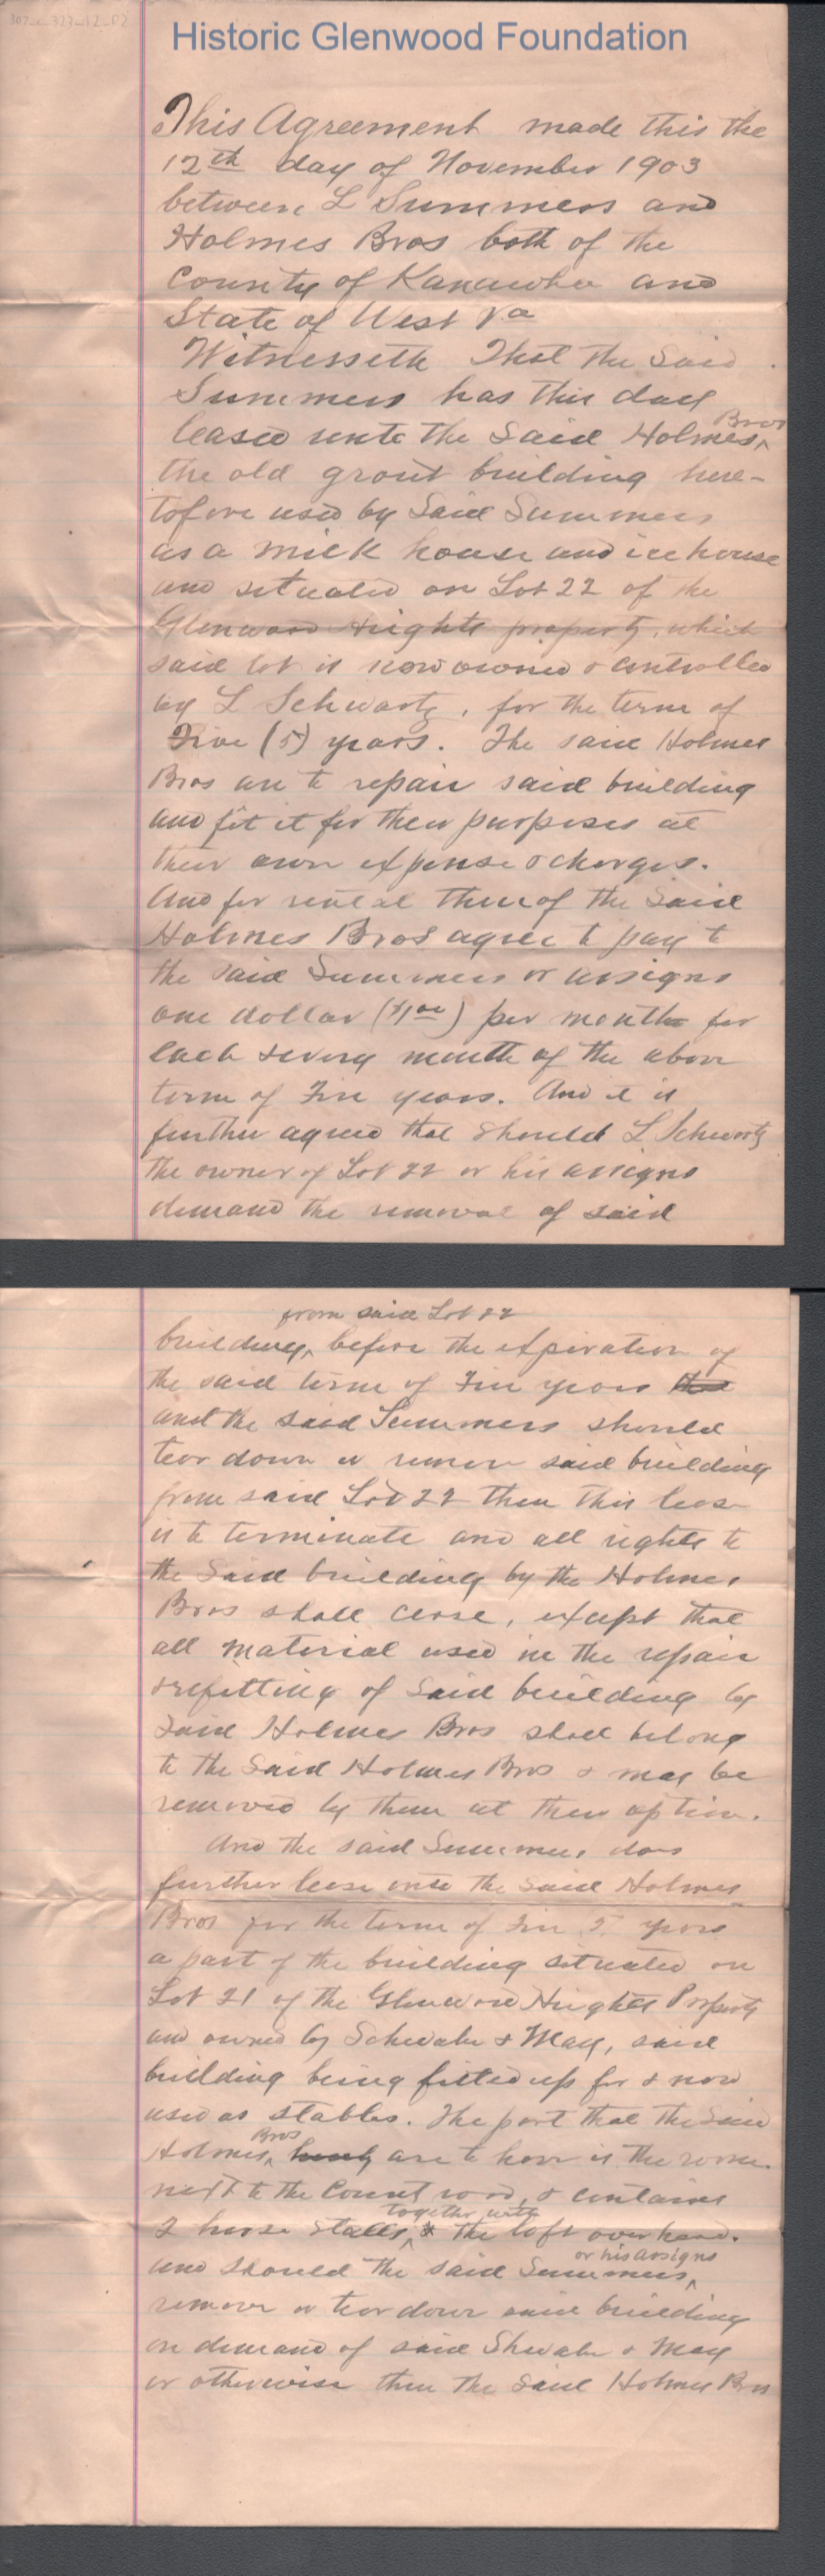 307_c_323_12_02
Historic Glenwood Foundation
This Agreement made this the
12th day of November 1903
between L Summers and
Holmes Bros both of the
County of Kanawha and
State of West Va
Witnesseth That the said
Summers has this day
Bros
leased unto the said Holmes^
the old grout building here-
tofore used by said Summers
as a milk house and ice house
and situated on Lot 22 of the
Glenwood Heights property, which
said lot is now owned & controlled
by L Schwartz, for the term of
Five (5) years. The said Holmes
Bros are to repair said building
and fit it for their purposes at
their own expense & charges.
And for rental thereof the said
Holmes Bros agree to pay to
the said Summers or assigns
one dollar ($1.00) per month for
each & every month of the above
term of Five years. And it is
further agreed that should L Schwartz
the owner of Lot 22 or his assigns
demand the removal of said
from said Lot 22
building^ before the expiration of
the said term of Five years
and the said Summers should
tear down or remove said building
from said Lot 22 then this lease
is to terminate and all rights to
the said building by the Holmes
Bros shall cease, except that
all material used in the repair
& refitting of said building by
said Holmes Bros shall belong
to the said Holmes Bros & may be
removed by them at their option.
And the said Summers does
further lease unto the said Holmes
Bros for the term of Five 5 years
a part of the building situated on
Lot 21 of the Glenwood Heights Property
and owned by Schwabe & May, said
building being fitted up for & now
used as stables. The part that the said
Bros
Holmes^ are to have is the room
next to the County road, & contains
together with
2 horse stalls,^ the loft over head.
or his assigns
and should the said Summers^
remove or tear down said building
on demand of said Shwabe & May
or otherwise then the said Holmes Bros